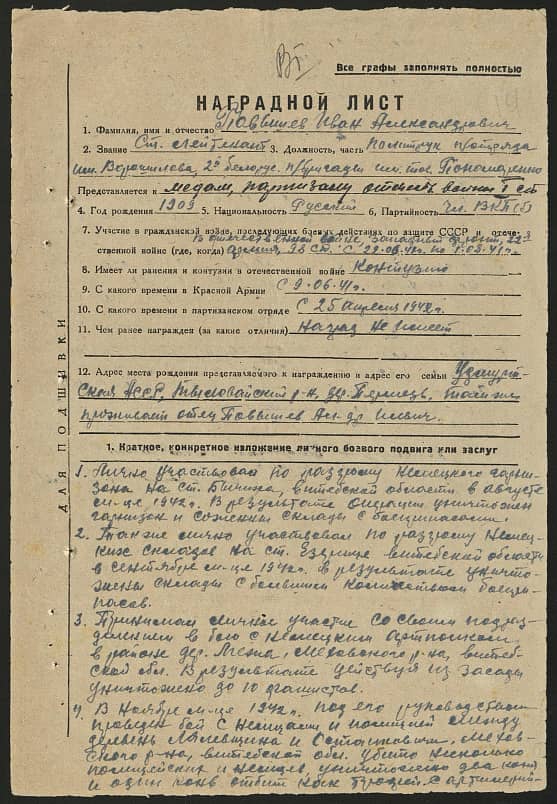 Все графы заполнять полностью
НАГРАДНОЙ ЛИСТ
1. Фамилия, имя и отчество Иван Александрович
2. Звание Ст. лейтенант 3. Должность, часть политрук п/отряда
им. Ворошилова, 2й белорус. п/бригады им. тов. Пономаренко
Представляется к медали, партизану отечеств. войны I ст
4. Год рождения 1909 5. Национальность Русский 6, Партийность Чл. ВКП(б)
7. Участие в гражданской войне, последующих боевых действиях по защите СССР и отече-
ственной войне (где, когда) В отечественной войне, западный фронт, 22й
армия, 98 СД. С 22.06.41г. по
8. Имеет ли ранения и контузии в отечественной войне Контузию
9. С какого времени в Красной Армии С 9.06.41г.
10. С какого времени в партизанском отряде С 25 апреля 1942г.
11. Чем ранее награжден (за какие отличия) Наград не имеет
12. Адрес места рождения представляемого к награждению и адрес его семьи Удмурт-
ская АССР, р-н, дер. там же
проживает отец
ДЛЯ ПОДШИВКИ
1. Краткое, конкретное изложение личного боевого подвига или заслуг
1. Лично участвовал по разгрому немецкого гарни-
зона на ст. Бычиха, витебской области в августе
м-це 1942г. В результате операции уничтожен
гарнизон и сожжены склады с боеприпасами.
2. Также лично участвовал по разгрому немец-
ких складов на ст. Езерище витебской области
в сентябре м-це 1942г. в результате уничто-
жены склады с большим количеством боепри-
пасов.
3. Принимал личное участие со своим подраз-
делением в бою с немецким
в районе дер. Межа, Меховского р-на, витеб-
ской обл. В результате действия из засады
уничтожено до 10 фашистов.
4. В ноябре м-це 1942г. под его руководством
проведен бой с немцами и полицией между
деревень и Меховс-
ского р-на, витебской обл. убито несколько
полицейских и немцев, уничтожено два коня
и один конь отбит как трофей с